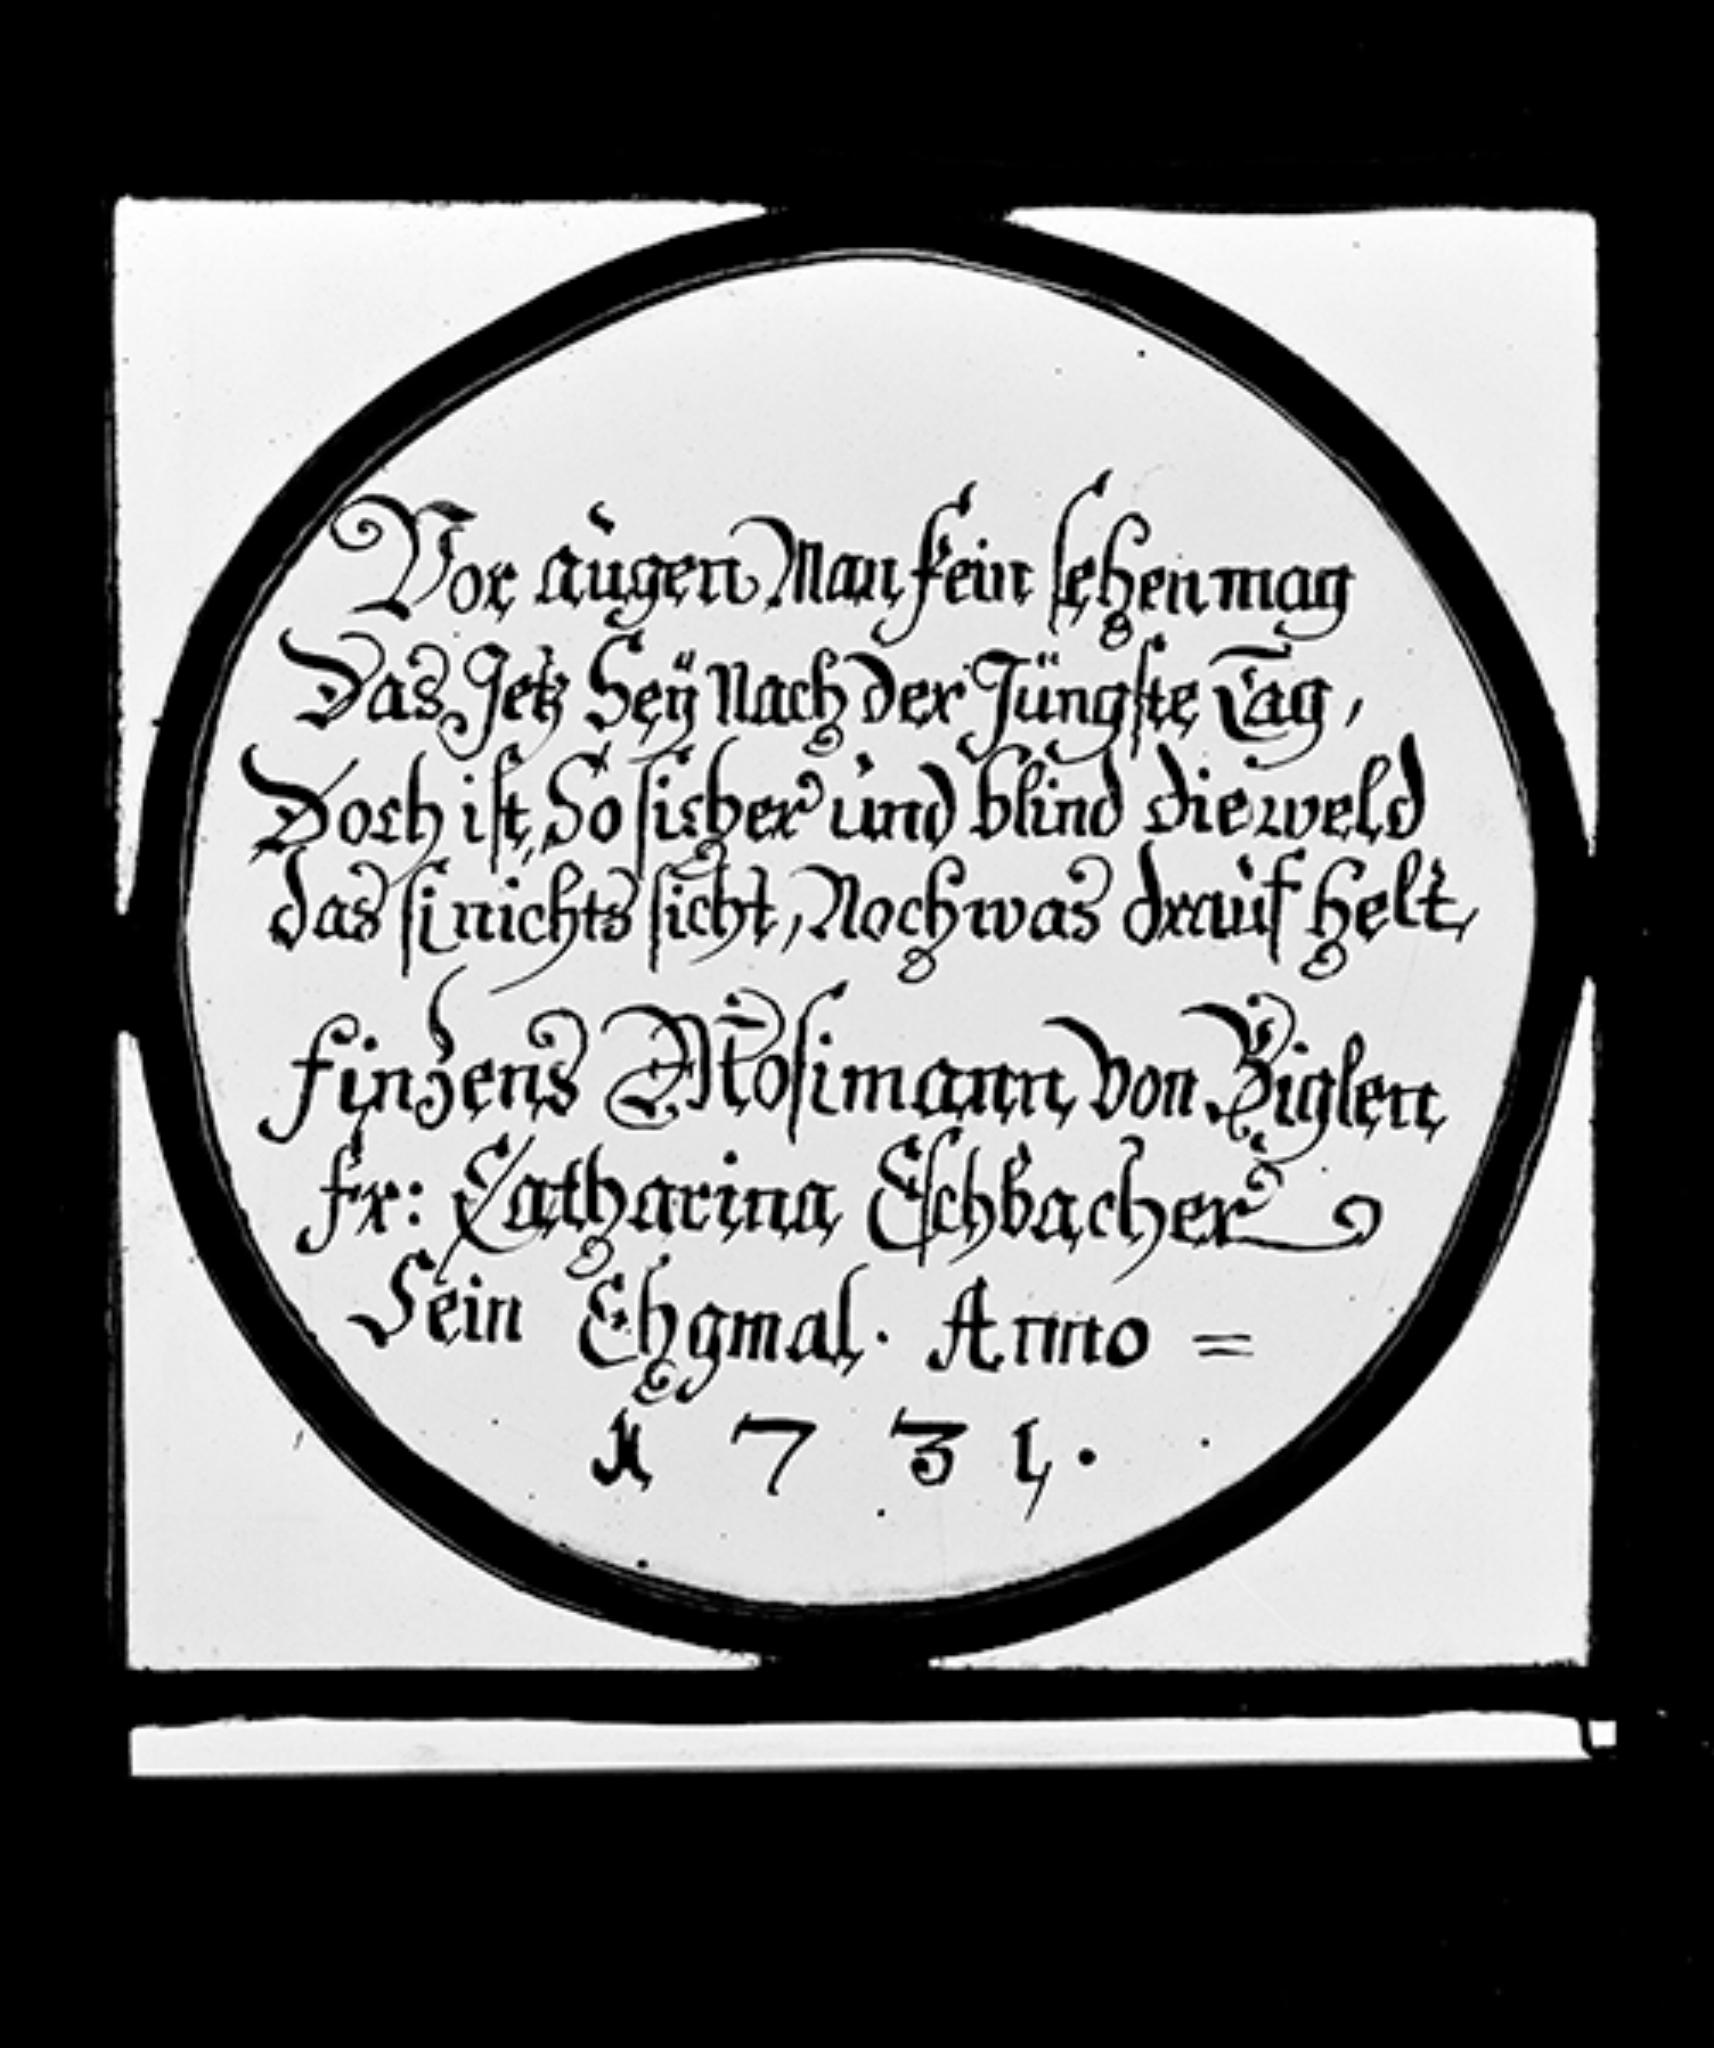 Vor augen Man fein sehen mag
Das Jetz Seÿ Nach der Jüngste Tag,
Doch ist, So sicher und blind die weld
das si nichts sicht, Noch was drauf helt,
finzens Mosimann von Biglen
fr: Catharina Eschbacher
Sein Ehgmal. Anno =
1731.